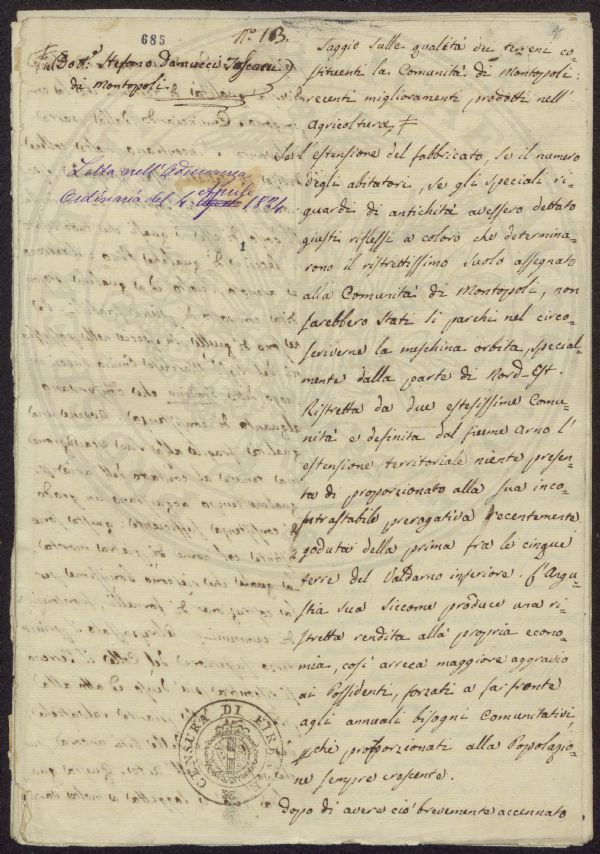 685
N° 13.
Del Dott.e Stefano Damucci Toscani
di Montopoli
Letta nell'Adunanza
Ordinaria del 4. Aprile 1824
1
Saggio sulle qualità dei terreni co=
stituenti la Comunità di Montopoli:
recenti miglioramenti prodotti nell'
agricoltura,
Se l'estensione del fabbricato, se il numero
degli abitatori, se gli speciali ri=
guardi di antichità avessero dettato
giusti riflessi a coloro che determina=
rono il ristrettissimo suolo assegnato
alla Comunità di Montopoli, non
sarebbero stati sì parchi nel circo=
scriverne la meschina orbita, special=
mente dalla parte di Nord-Est.
Ristretta da due estesissime Comu=
nità e definita dal fiume Arno l'
estensione territoriale niente presen=
ta di proporzionato alla sua inco=
ntrastabile prerogativa recentemente
goduta della prima fra le cinque
terre del Valdarno inferiore. L'Angu=
stia sua siccome produce una ri=
stretta rendita alla propria econo=
mia, così arreca maggiore aggravio
ai Possidenti, forzati a far fronte
agli annuali bisogni Comunitativi,
perchè proporzionati alla Popolazio=
ne sempre crescente.
Dopo di avere ciò brevemente accennato
CENSURA DI FIRENZE